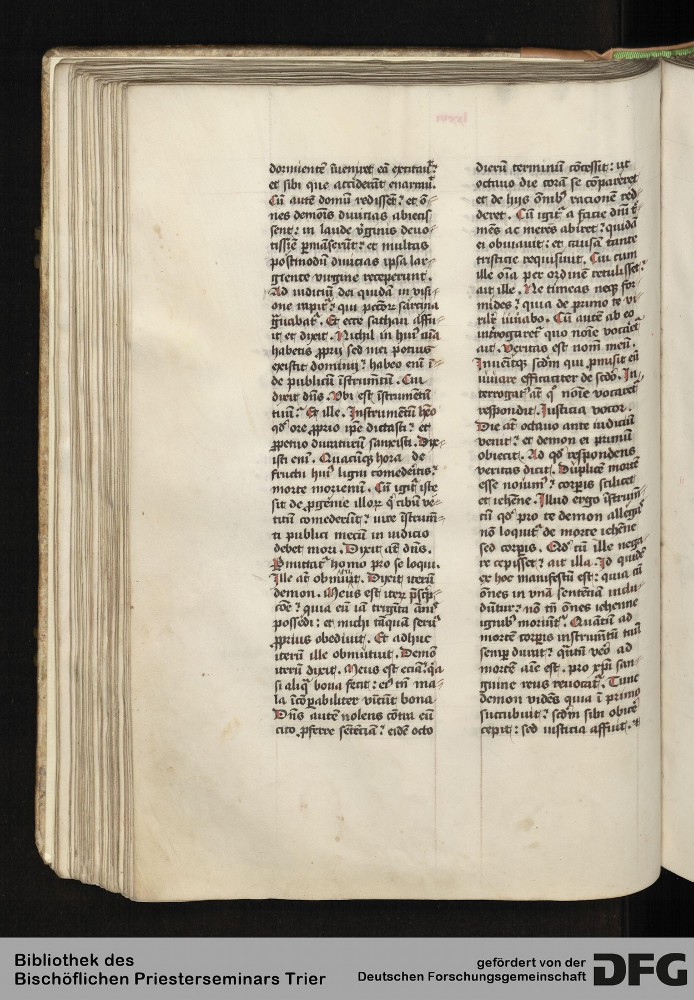 dormientē īuenyret eā excitaūt:
et sibi que acciderāt enarraūt.
Cū autē domū redisset: et ō-
nes demōis diuicias abiecis
sent: in laude v̓ginis deuo-
tissīe ꝑmāserūt: et multas
postmodū diuicias ipsa lar-
giente virgine receperunt.
Ad iudiciū dei quidā in visi-
one rapit᷑: qui pctōꝝ sarcina
g̃uabat᷑. Et ecce sathan affu-
it et dixit. Nichil in hui᷒ aīa
habetis ꝓprij sed mei potius
existit dominij: habeo enī ī-
de publicū īstrumētū. Cui
dixit dn̄s. Vbi est īstrumētū
tuū: Et ille. Instrumētū heo
qd̓ ore ꝓprio ip̄e dictasti: et
ꝑpetuo duraturū sanxisti. Dix-
isti enī. Quacūqꝫ hora de
fructu hui᷒ ligni comederitis:
morte moriemī. Cū igit᷑ iste
sit de ꝓgenie illoꝝ q̓ cibū ve-
titū comederūt: iure īstrum̄-
ti publici mecū in iudicio
debet mori. Dixit at̄ dn̄s.
Ꝑmittat᷑ homo pro se loqui.
Ille at̄ obmutuit. Dixit iterū
demon. Meus est iteꝝ p̄scrip-
cōe: quia eū iā trigīta ānis
possedi: et michi tāquā seru᷒
ꝓprius obediuit. Et adhuc
iterū ille obmutuit. Demō
iterū dixit. Meus est eciā: q̓a
si aliq̄ bona fecit: eı᷒ tn̄ ma-
la īcōꝑabiliter vīcūt bona.
Dn̄s autē nolens cōtra eū
cito ꝓferre sētēciā: eidē octo
lxxvi
dierū terminū cōcessit: ut
octauo die corā se cōpareret
et de hijs ōnib᷒ racionē red-
deret. Cū igit᷑ a facie dn̄i t̓-
mēs ac merēs abiret: quidā
ei obuiauit: et causā tante
tristicie requisiuit. Cui cum
ille oīa per ordinē retulisset:
ait ille. Ne timeas neqꝫ for-
mides: quia de primo te vi-
rilit̓ iuuabo. Cū autē ab eo
int̓rogaret᷑ quo noīe vocaret᷑
ait. Veritas est nom̄ meū.
Inuēitqꝫ scd̄m qui ꝓmisit eū
iuuare efficaciter de scd̄o. In-
terrogat᷑ at̄ q̊ noīe vocaret᷑
respondit. Iusticia vocor.
Die at̄ octauo ante iudiciū
venit: et demon ei primū
obiecit. Ad qd̓ respondens
veritas dicit. Duplicē mortē
esse nouim᷒: corpis scilicet
et iehēne. Illud ergo īstrum̄-
tū qd̓ pro te demon allegat
nō loquit᷑ de morte iehēne
sed corpis. Qd̓ cū ille nega-
re cepisset: ait illa. Id quidē
ex hoc manifestū est: quia cū
ōnes in vnā sentēciā inclu-
dūtur: nō tn̄ ōnes iehenne
ignib᷒ moriūt᷑. Quātū ad
mortē corpis instrumētū tuū
semꝑ durat: q̄ntū v̓o ad
mortē aīe est. pro xp̄i san-
guine reus reuocat᷑. Tunc
demon vidēs quia ī primo
succubuit: scd̄m sibi obicē
cepit: sed iusticia affuit.
Bibliothek des
Bischöflichen Priesterseminars Trier
gefördert von der
Deutschen Forschungsgemeinschaft
DFG